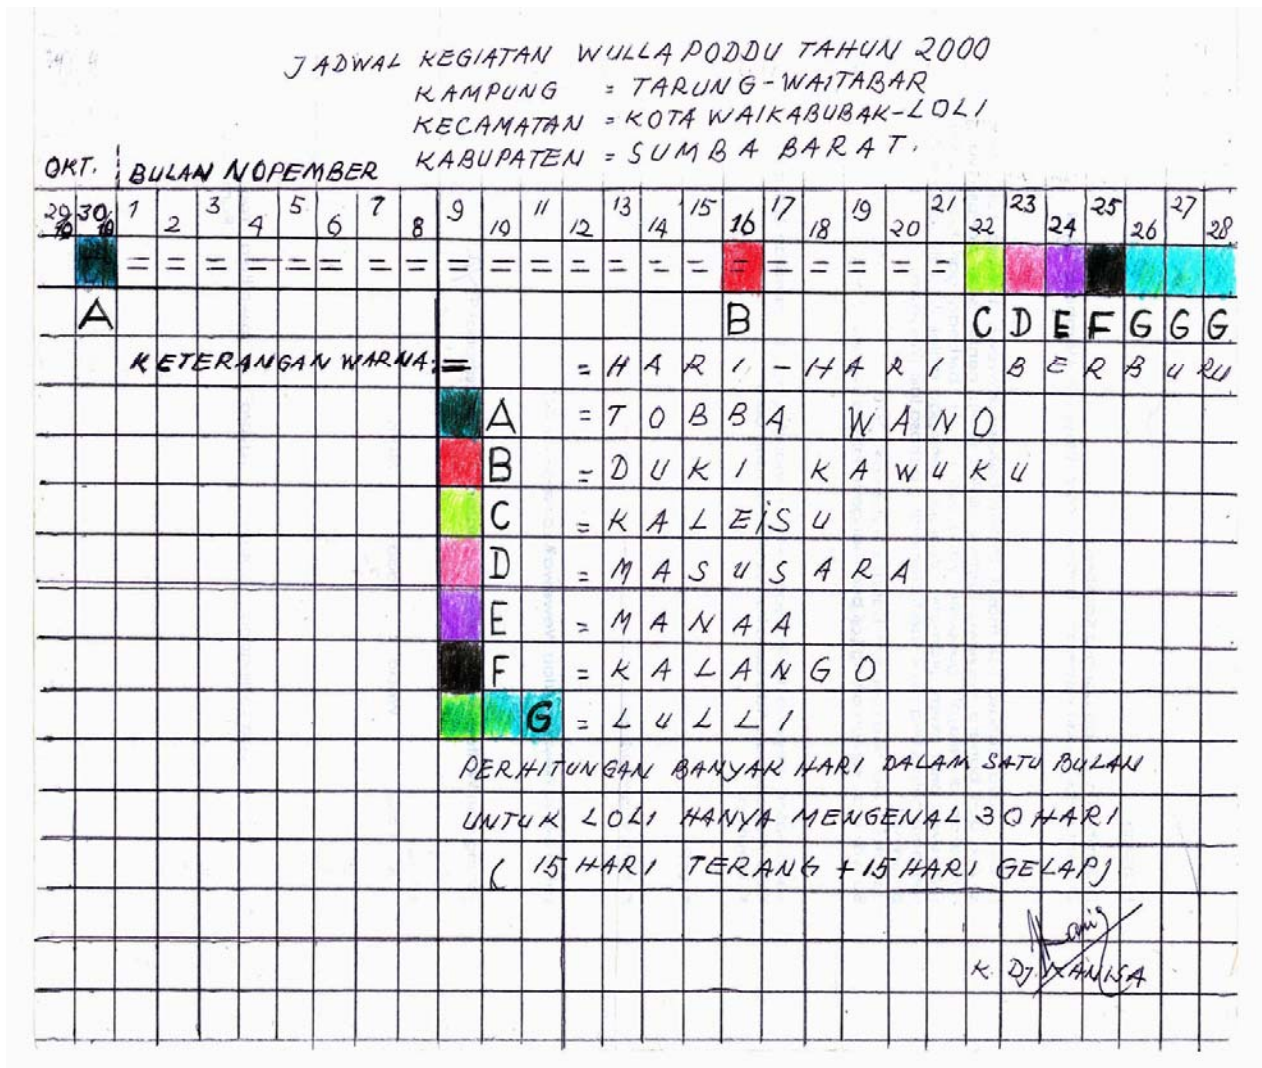 JADWAL KEGIATAN WULLA PODDU TAHUN 2000
KAMPUNG = TARUNG-WAITABAR
KECAMATAN = KOTA WAIKABUBAK-LOLI
KABUPATEN = SUMBA BARAT.
OKT. BULAN NOPEMBER
29/10 30/10 1 2 3 4 5 6 7 8 9 10 11 12 13 14 15 16 17 18 19 20 21 22 23 24 25 26 27 28
= = = = = = = = = = = = = = = = = = = = =
A B C D E F G G G
KETERANGAN WARNA: = = HARI-HARI BERBURU
A = TOBBA WANO
B = DUKI KAWUKU
C = KALEISU
D = MASUSARA
E = MANAA
F = KALANGO
G = LULLI
PERHITUNGAN BANYAK HARI DALAM SATU BULAN
UNTUK LOLI HANYA MENGENAL 30 HARI
( 15 HARI TERANG + 15 HARI GELAP)
K. Dj.